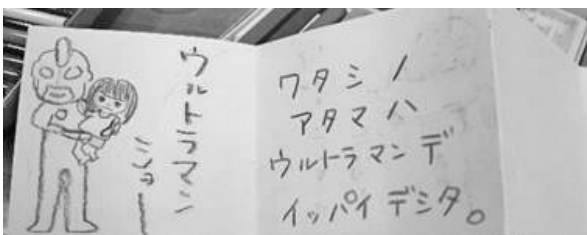 ウルトラマン
ワタシノ
アタマハ
ウルトラマンデ
イッパイデシタ。